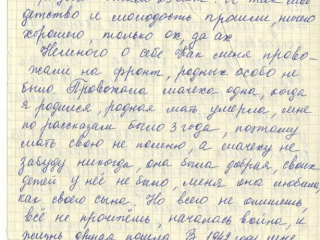 детство и молодость прошли, ничего
хорошего, только ох, да ах
Немного о себе. Как меня прово-
жали на фронт, родных особо не
было. Провожала мачеха одна, когда
я родился, родная мать умерла, мне
по рассказам было 3 года, поэтому
мать свою не помню, а мачеху не
забуду никогда, она была добрая, своих
детей у неё не было, меня она любила
как своего сына. Но всего не опишешь
всё не прочтёшь, началась война, и
жизнь пошла. В 1942 году мне